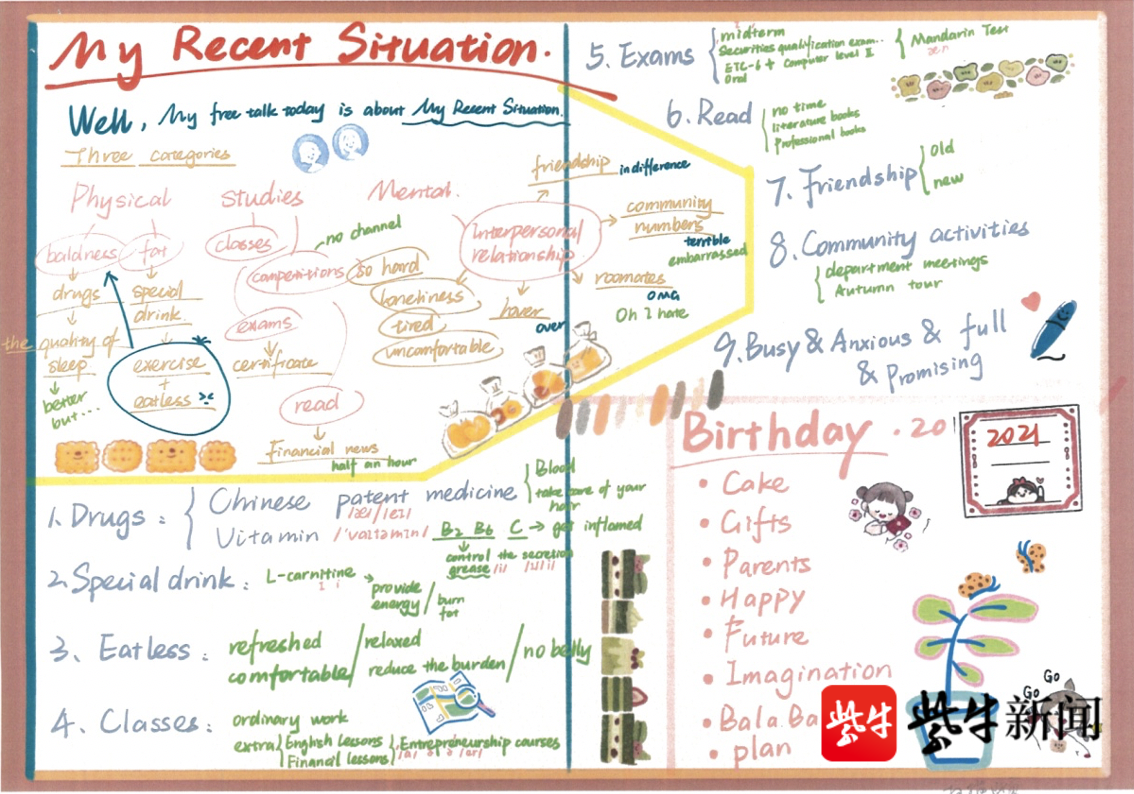 My Recent Situation.
Well, My free talk today is about My Recent Situation.
Three categories
Physical
baldness
fat
drugs
special
drink.
the quality of
sleep
better
but...
exercise
+
eatless
studies
classes
competitions
no channel
exams
certificate
read
Financial news
half an hour
Mental.
so hard
loneliness
tired
uncomfortable
Interpersonal
relationship
friendship
indifference
community
numbers
terrible
embarrassed
roomates
OMG
Oh I hate
hover
over
1. Drugs:
Chinese patent medicine
Blood
take care of your
hair
Vitamin /'vaitəmin/ B2 B6 C → get inflamed
control the secretion
grease
2. Special drink:
L-carnitine
provide
energy/
burn
fat
3、Eatless:
refreshed
comfortable/
relaxed
reduce the burden/
no belly
4、Classes:
ordinary work
extra
English lessons
Financil lessons
Entrepreneurship courses
5. Exams
midterm
Securities qualification exam...
ETC-6 + Computer level II
Oral
Mandarin Test
6. Read
no time
literature books
Professional books
7. Friendship
old
new
8. Community activities
department meetings
Autumn tour
9. Busy & Anxious & full
& Promising
Birthday · 20
2021
• Cake
• Gifts
• Parents
• Happy
• Future
• Imagination
• Bala.Ba
• plan
Go
Go
紫牛
紫牛新闻